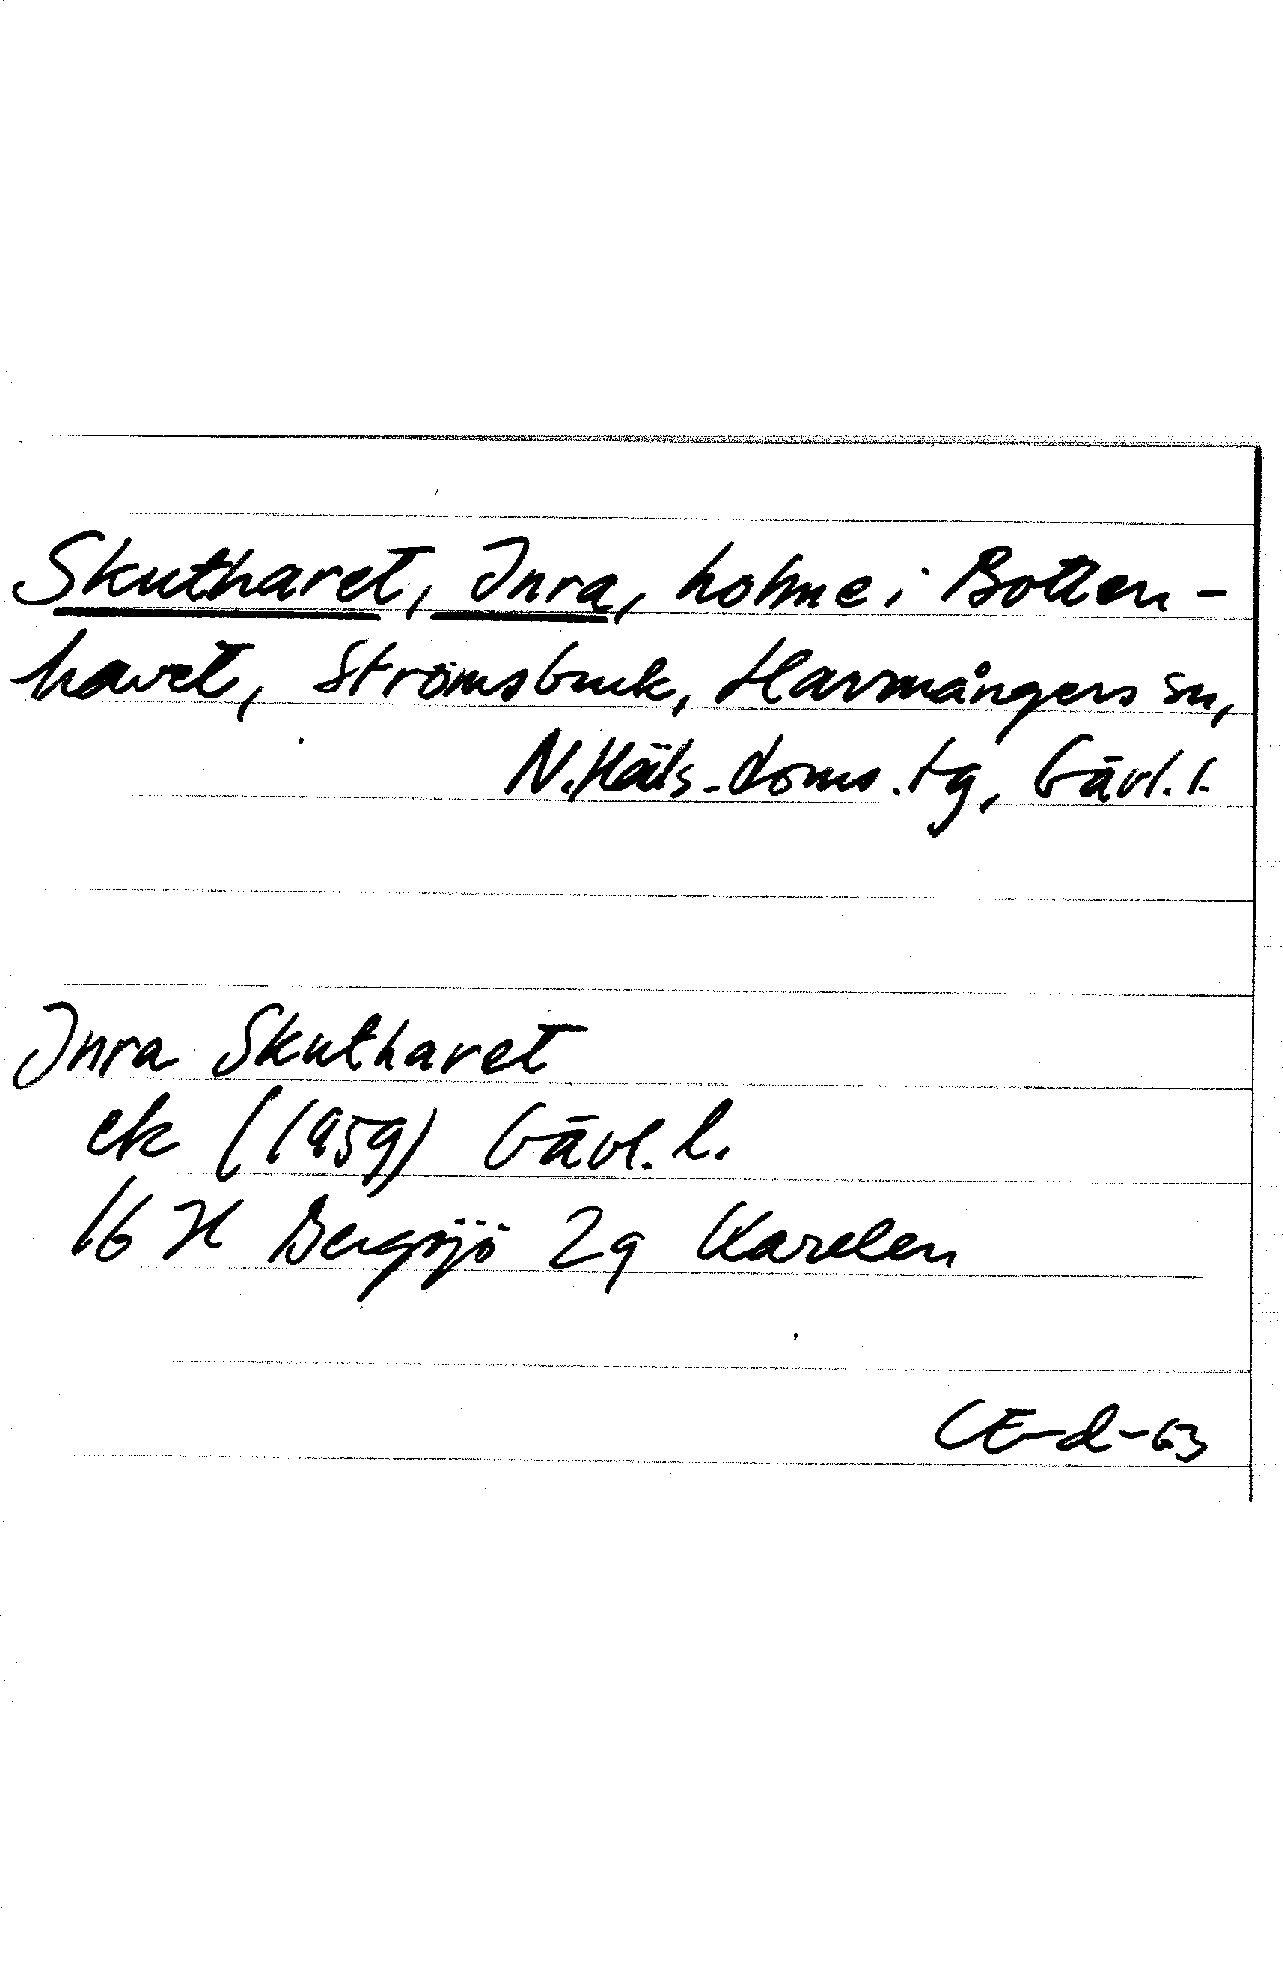 Skutharet, Inra, holme i Botten-
havet, Strömsbruk, Harmångers sn,
N. Häls. doms. tg, Gävl. l.
Inra Skutharet
ek (1959) Gävl. l.
16 H Bergsjö 2g Karelen
CE-d-63